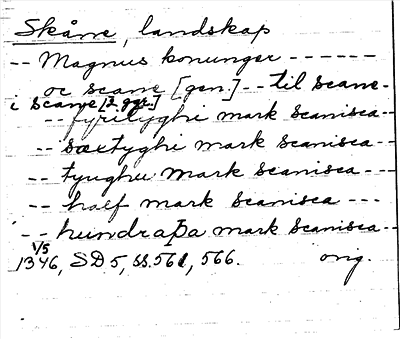 Skåne, landskap
-- Magnus konunger ------
oc scane [gen.] -- til scane -
i scane [2 ggr.]
-- fyrityghi mark scanisca --
-- sæxtyghi mark scanisca --
-- tyughu mark scanisca ---
-- half mark scanisca ---
-- hundraþa mark scanisca --
1/5
1346, SD 5, ss. 561, 566. orig.